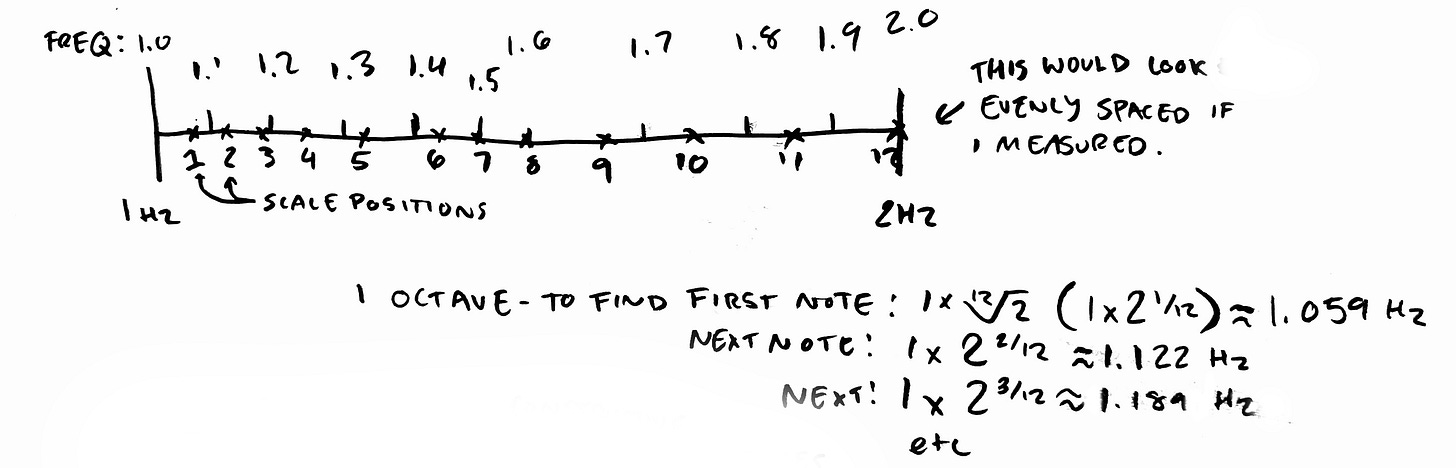 FREQ: 1.0 1.1 1.2 1.3 1.4 1.5 1.6 1.7 1.8 1.9 2.0
THIS WOULD LOOK
EVENLY SPACED IF
I MEASURED.
1 2 3 4 5 6 7 8 9 10 11 12
SCALE POSITIONS
1 HZ
2HZ
1 OCTAVE - TO FIND FIRST NOTE: 1 x ¹²√2 (1 x 2^1/12) ≈ 1.059 HZ
NEXT NOTE: 1 x 2^2/12 ≈ 1.122 HZ
NEXT: 1 x 2^3/12 ≈ 1.189 HZ
etc